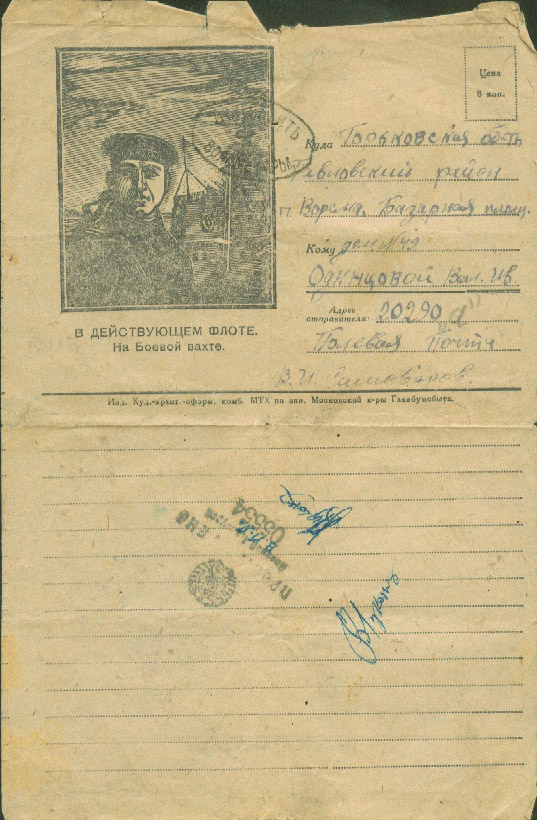 Цена
8 коп.
Куда Горьковская об-ть
Павловский район
п. Ворсма, Базарная площ.
Кому дом №
Одинцовой Вал. Ив.
Адрес отправителя: 20290 "д"
Полевая Почта
В. И.
В ДЕЙСТВУЮЩЕМ ФЛОТЕ.
На Боевой вахте.
Изд. Худ.-архит.-оформ. комб. МТХ по зак. Московской к-ры Главбумсбыта.